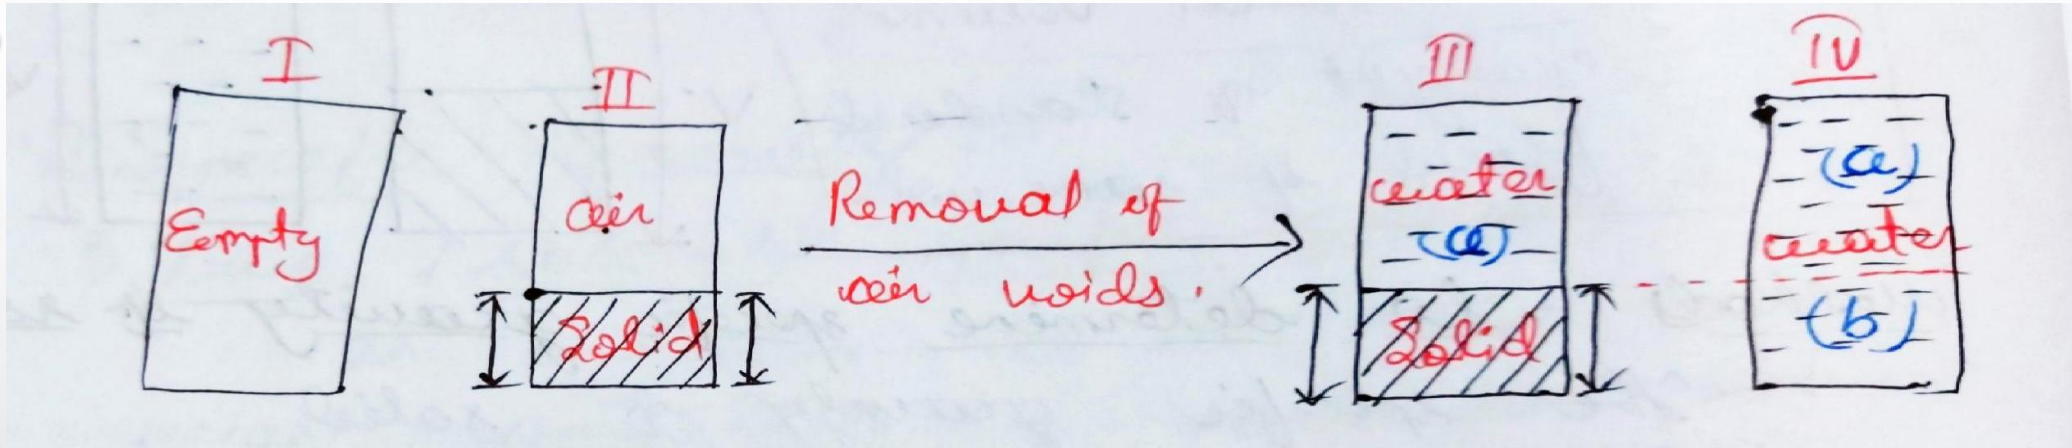 I
Empty
II
air
Solid
Removal of
air voids.
III
water
(a)
Solid
IV
(a)
water
(b)